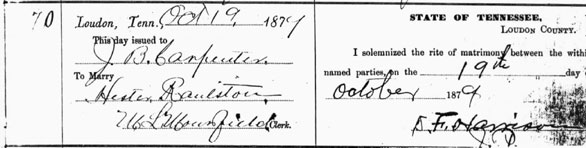 70
Loudon, Tenn. Oct 19, 1879
This day issued to
J. B. Carpenter
To Marry
Hester Raulston
Clerk.
STATE OF TENNESSEE,
LOUDON COUNTY.
I solemnized the rite of matrimony between the withi
named parties, on the 19th day
October 1879
F. Harrison
J. P.